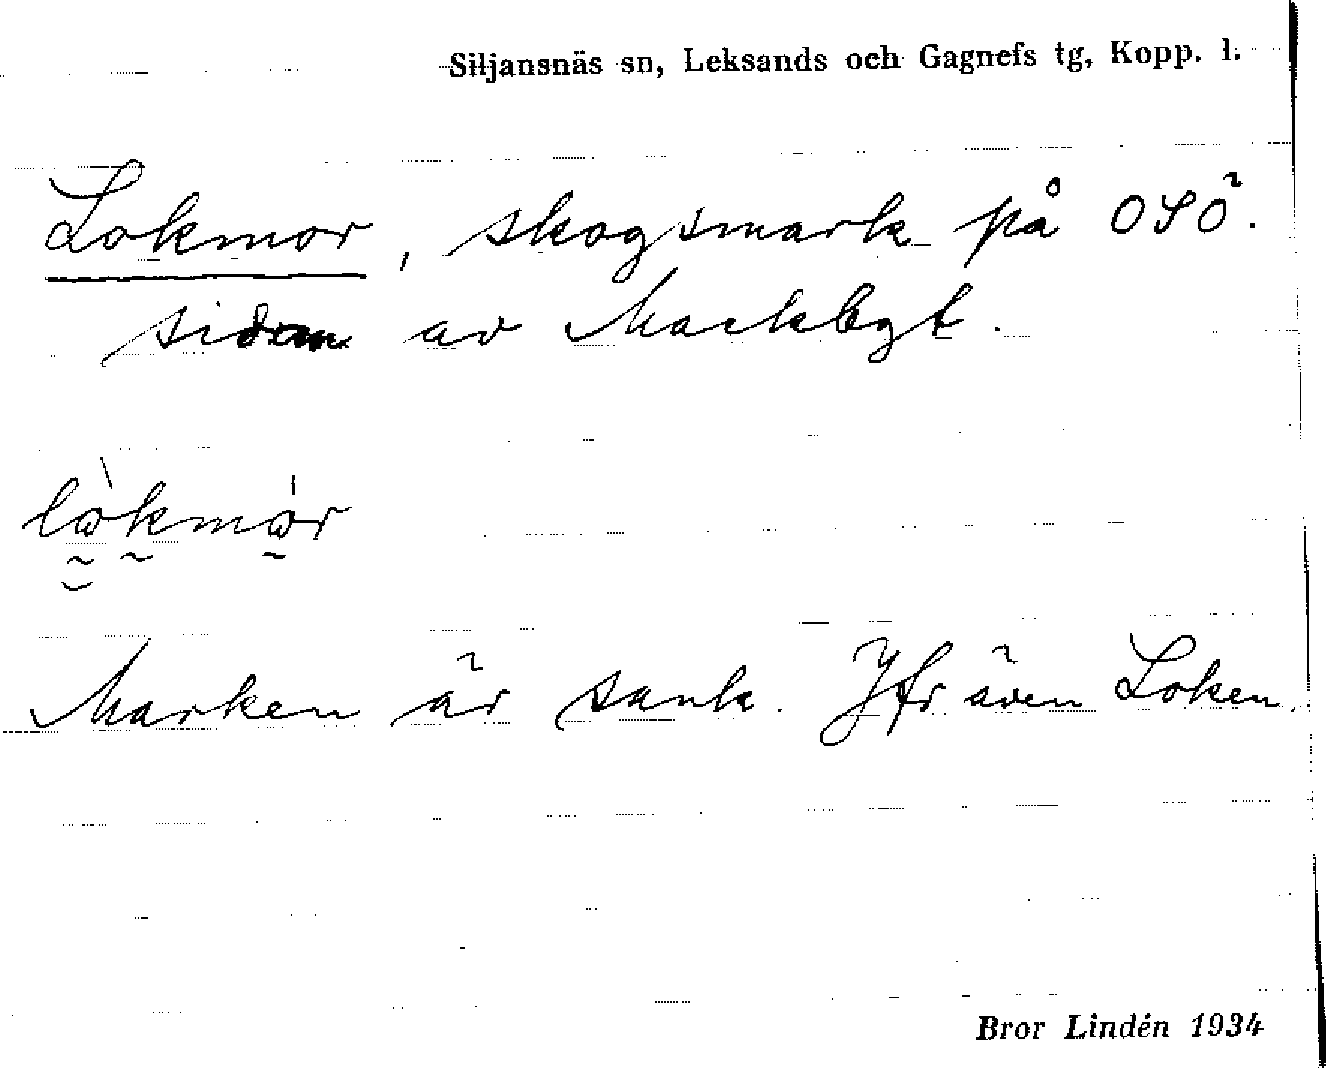 Siljansnäs sn, Leksands och Gagnefs tg, Kopp. l.
Lokmor, skogsmark på OSÖ.
sidan av Backbyt.
lòkmór
Marken är sank. Jfr även Loken.
Bror Lindén 1934